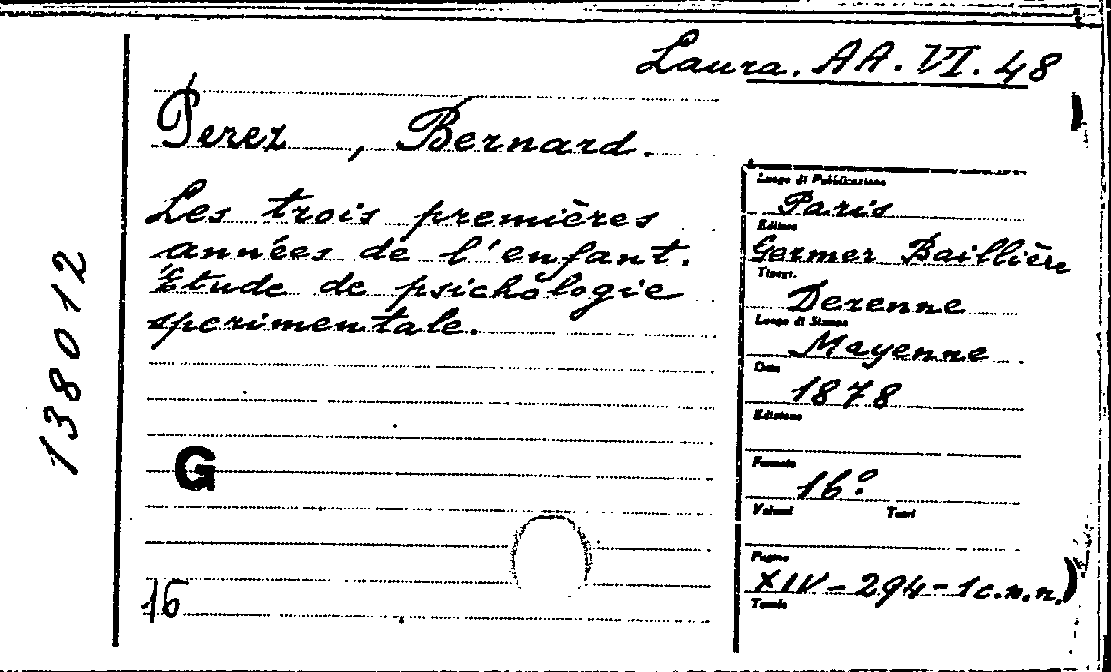 Laura. AA. VI. 48
Perez, Bernard.
Les trois premières
années de l'enfant.
Étude de psichologie
sperimentale.
138012
G
16
Luogo di Pubblicazione
Paris
Editore
Germer Baillière
Tipogr.
Derenne
Luogo di Stampa
Mayenne
Data
1878
Edizione
Formato
16º
Volumi Tomi
Pagine
XIV-294-1c.n.n.
Tavole